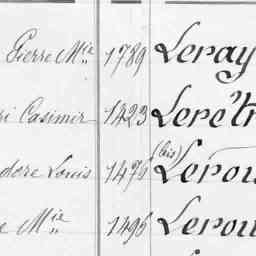 Pierre Mie 1789 Leray
ri Casimir 1423 Lerét
dore Louis 1474 (bis) Lerou
e Mie 1495 Lerou